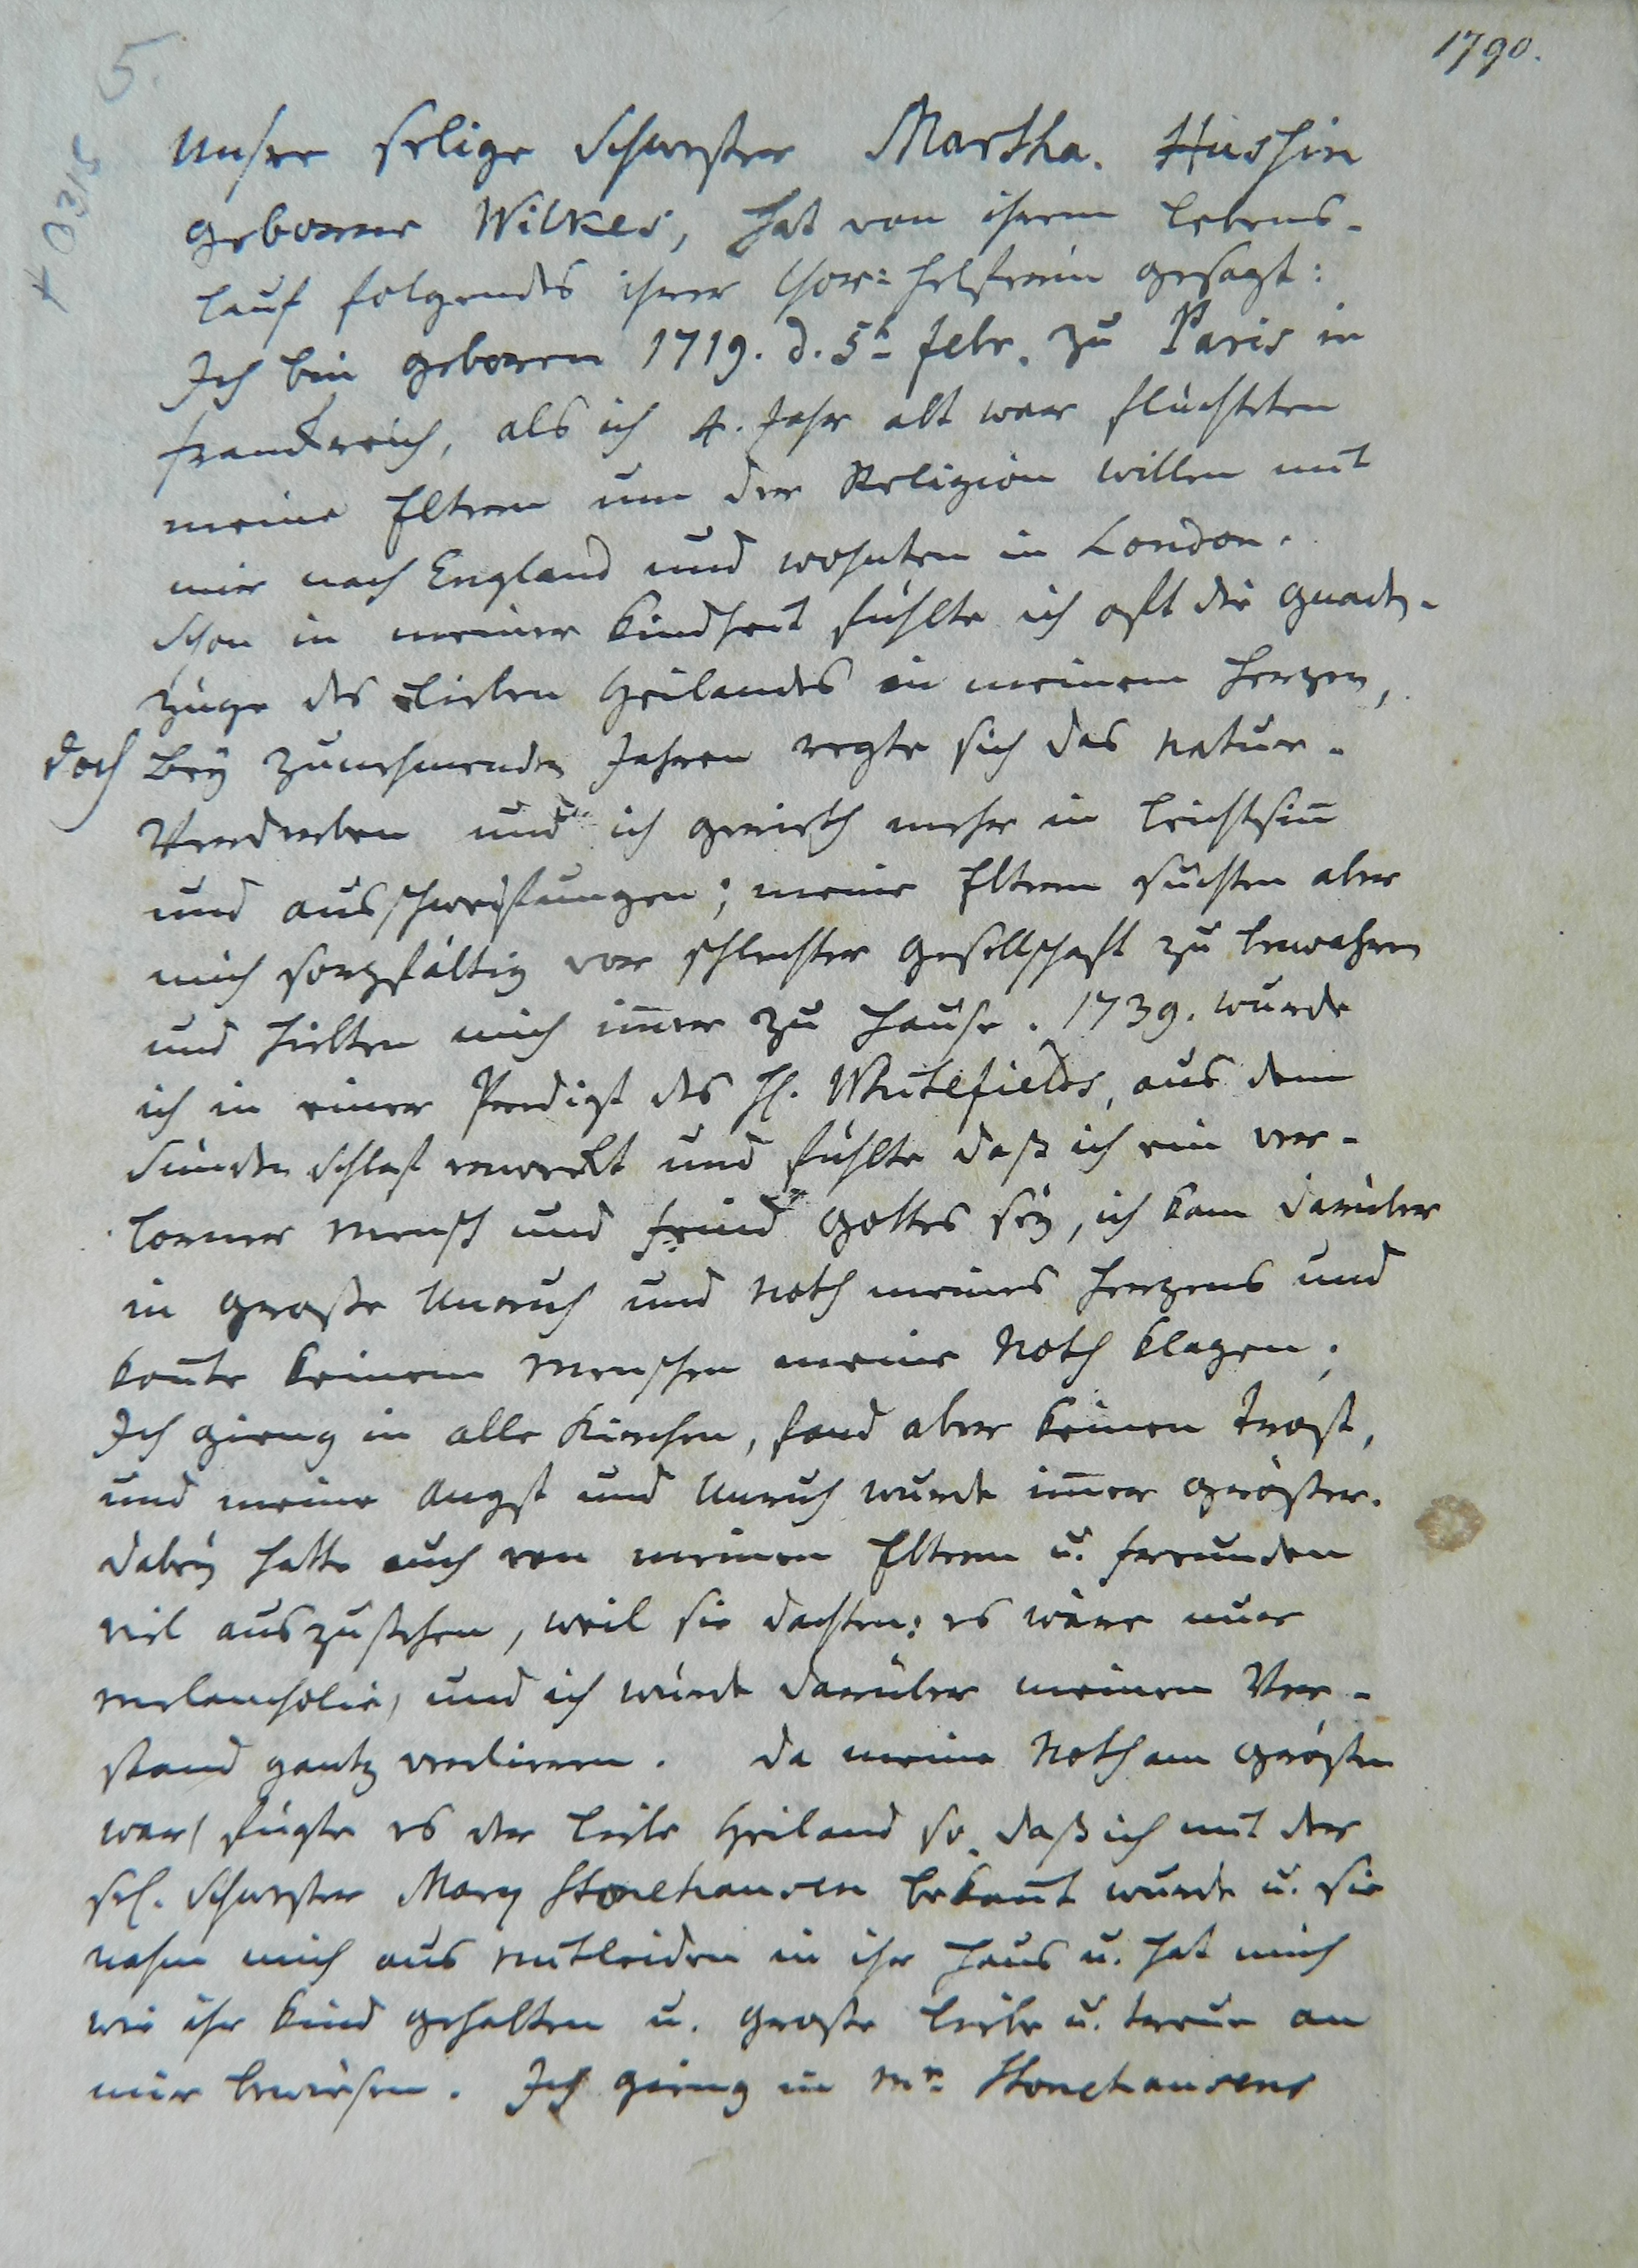 1790.
5.
Unsre selige Schwester Martha. Hussin
geborne Wilkes, hat von ihrem Lebens-
lauf folgendes ihrer Chor: Helferin gesagt:
Ich bin geboren 1719. d. 5t Febr. zu Paris in
Franckreich, als ich 4. Jahr alt war flüchteten
meine Eltern um der Religion willen mit
mir nach England und wohnten in London.
Schon in meiner Kindheit fühlte ich oft die Gnaden-
züge des lieben Heilandes in meinem Herzen,
doch bey zunehmenden Jahren regte sich das natur-
Verderben und ich gerieth mehr in Leichtsin̄
und ausschweifungen; meine Eltern suchten aber
mich sorgfältig vor schlechter Gesellschaft zu bewahren
und hielten mich im̄er zu Hause. 1739. wurde
ich in einer Predigt des H. Whitefields, aus dem
Sünden Schlaf erweckt und fühlte daß ich ein ver-
lorner Mensch und Feind Gottes sey, ich kam darüber
in große Unruh und Noth meines Herzens und
kon̄te keinem Menschen meine Noth klagen;
Ich gieng in alle Kirchen, fand aber keinen Trost,
und meine Angst und Unruh wurde im̄er größer.
dabey hatte auch von meinen Eltern u. Freunden
viel auszustehen, weil sie dachten: es wäre nur
melancholie, und ich würde darüber meinen Ver-
stand gantz verlieren. Da meine Noth am größten
war, fügte es der liebe Heiland so, daß ich mit der
sel. Schwester Mary Stonehausen bekan̄t wurde u. sie
nahm mich aus mitleiden in ihr Haus u. hat mich
wie ihr Kind gehalten u. große Liebe u. Treue an
mir bewiesen. Ich gieng in Mr. Stonehausens